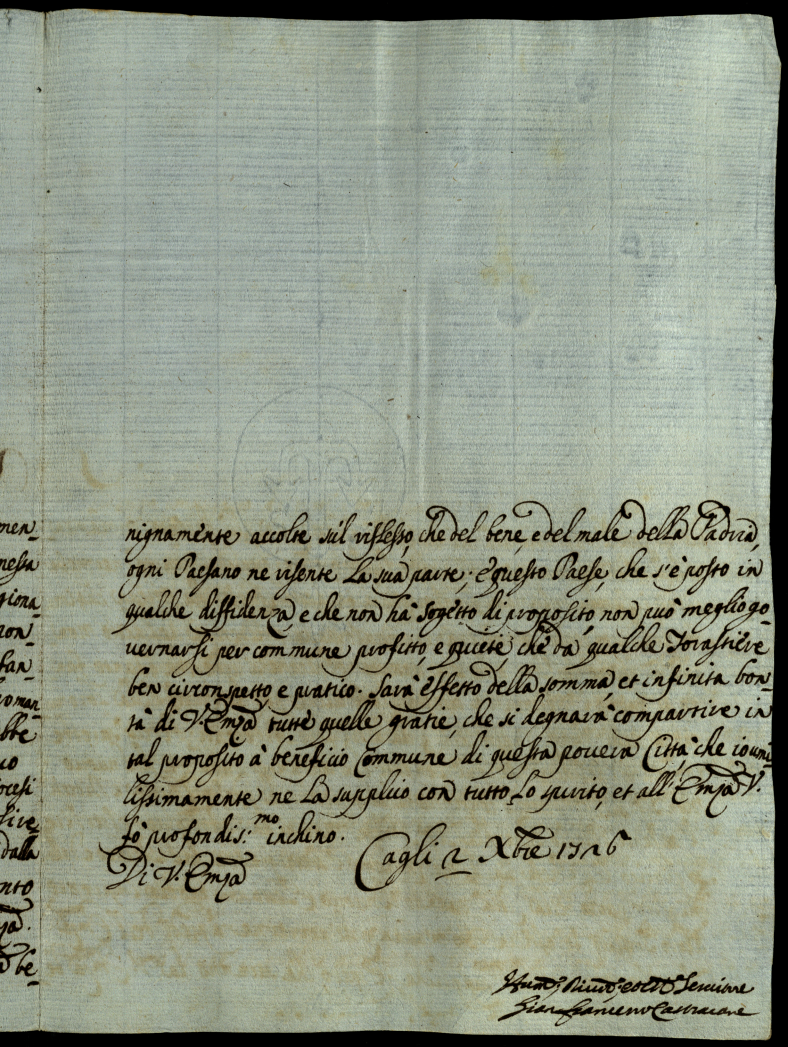 men-
nessa
giona-
non-
fan-
roman-
bbe
uo
ocesi
sive
dalla
nto
be-
nignamente accolte sul riflesso, che del bene, e del male della Padria,
ogni Paesano ne risente La sua parte; e questo Paese, che s'è posto in
qualche diffidenza, e che non hà sogetto di proposito, non può meglio go-
vernarsi per commune profitto, e quiete, che dà qualche Forastiere
ben circonspetto e pratico. Sarà effetto della somma, et infinita bon-
tà di V. Emza tutte quelle gratie, che si degnarà compartire in
tal proposito à beneficio Commune di questa povera Città che io umi-
lissimamente ne La supplico con tutto Lo spirito, et all' Emza V.
fò profondis:mo inchino.
Cagli 2 Xbre 1726
Di V. Emza
Humo Divmo, et Obbmo Servitore
Gian Francesco Castracane